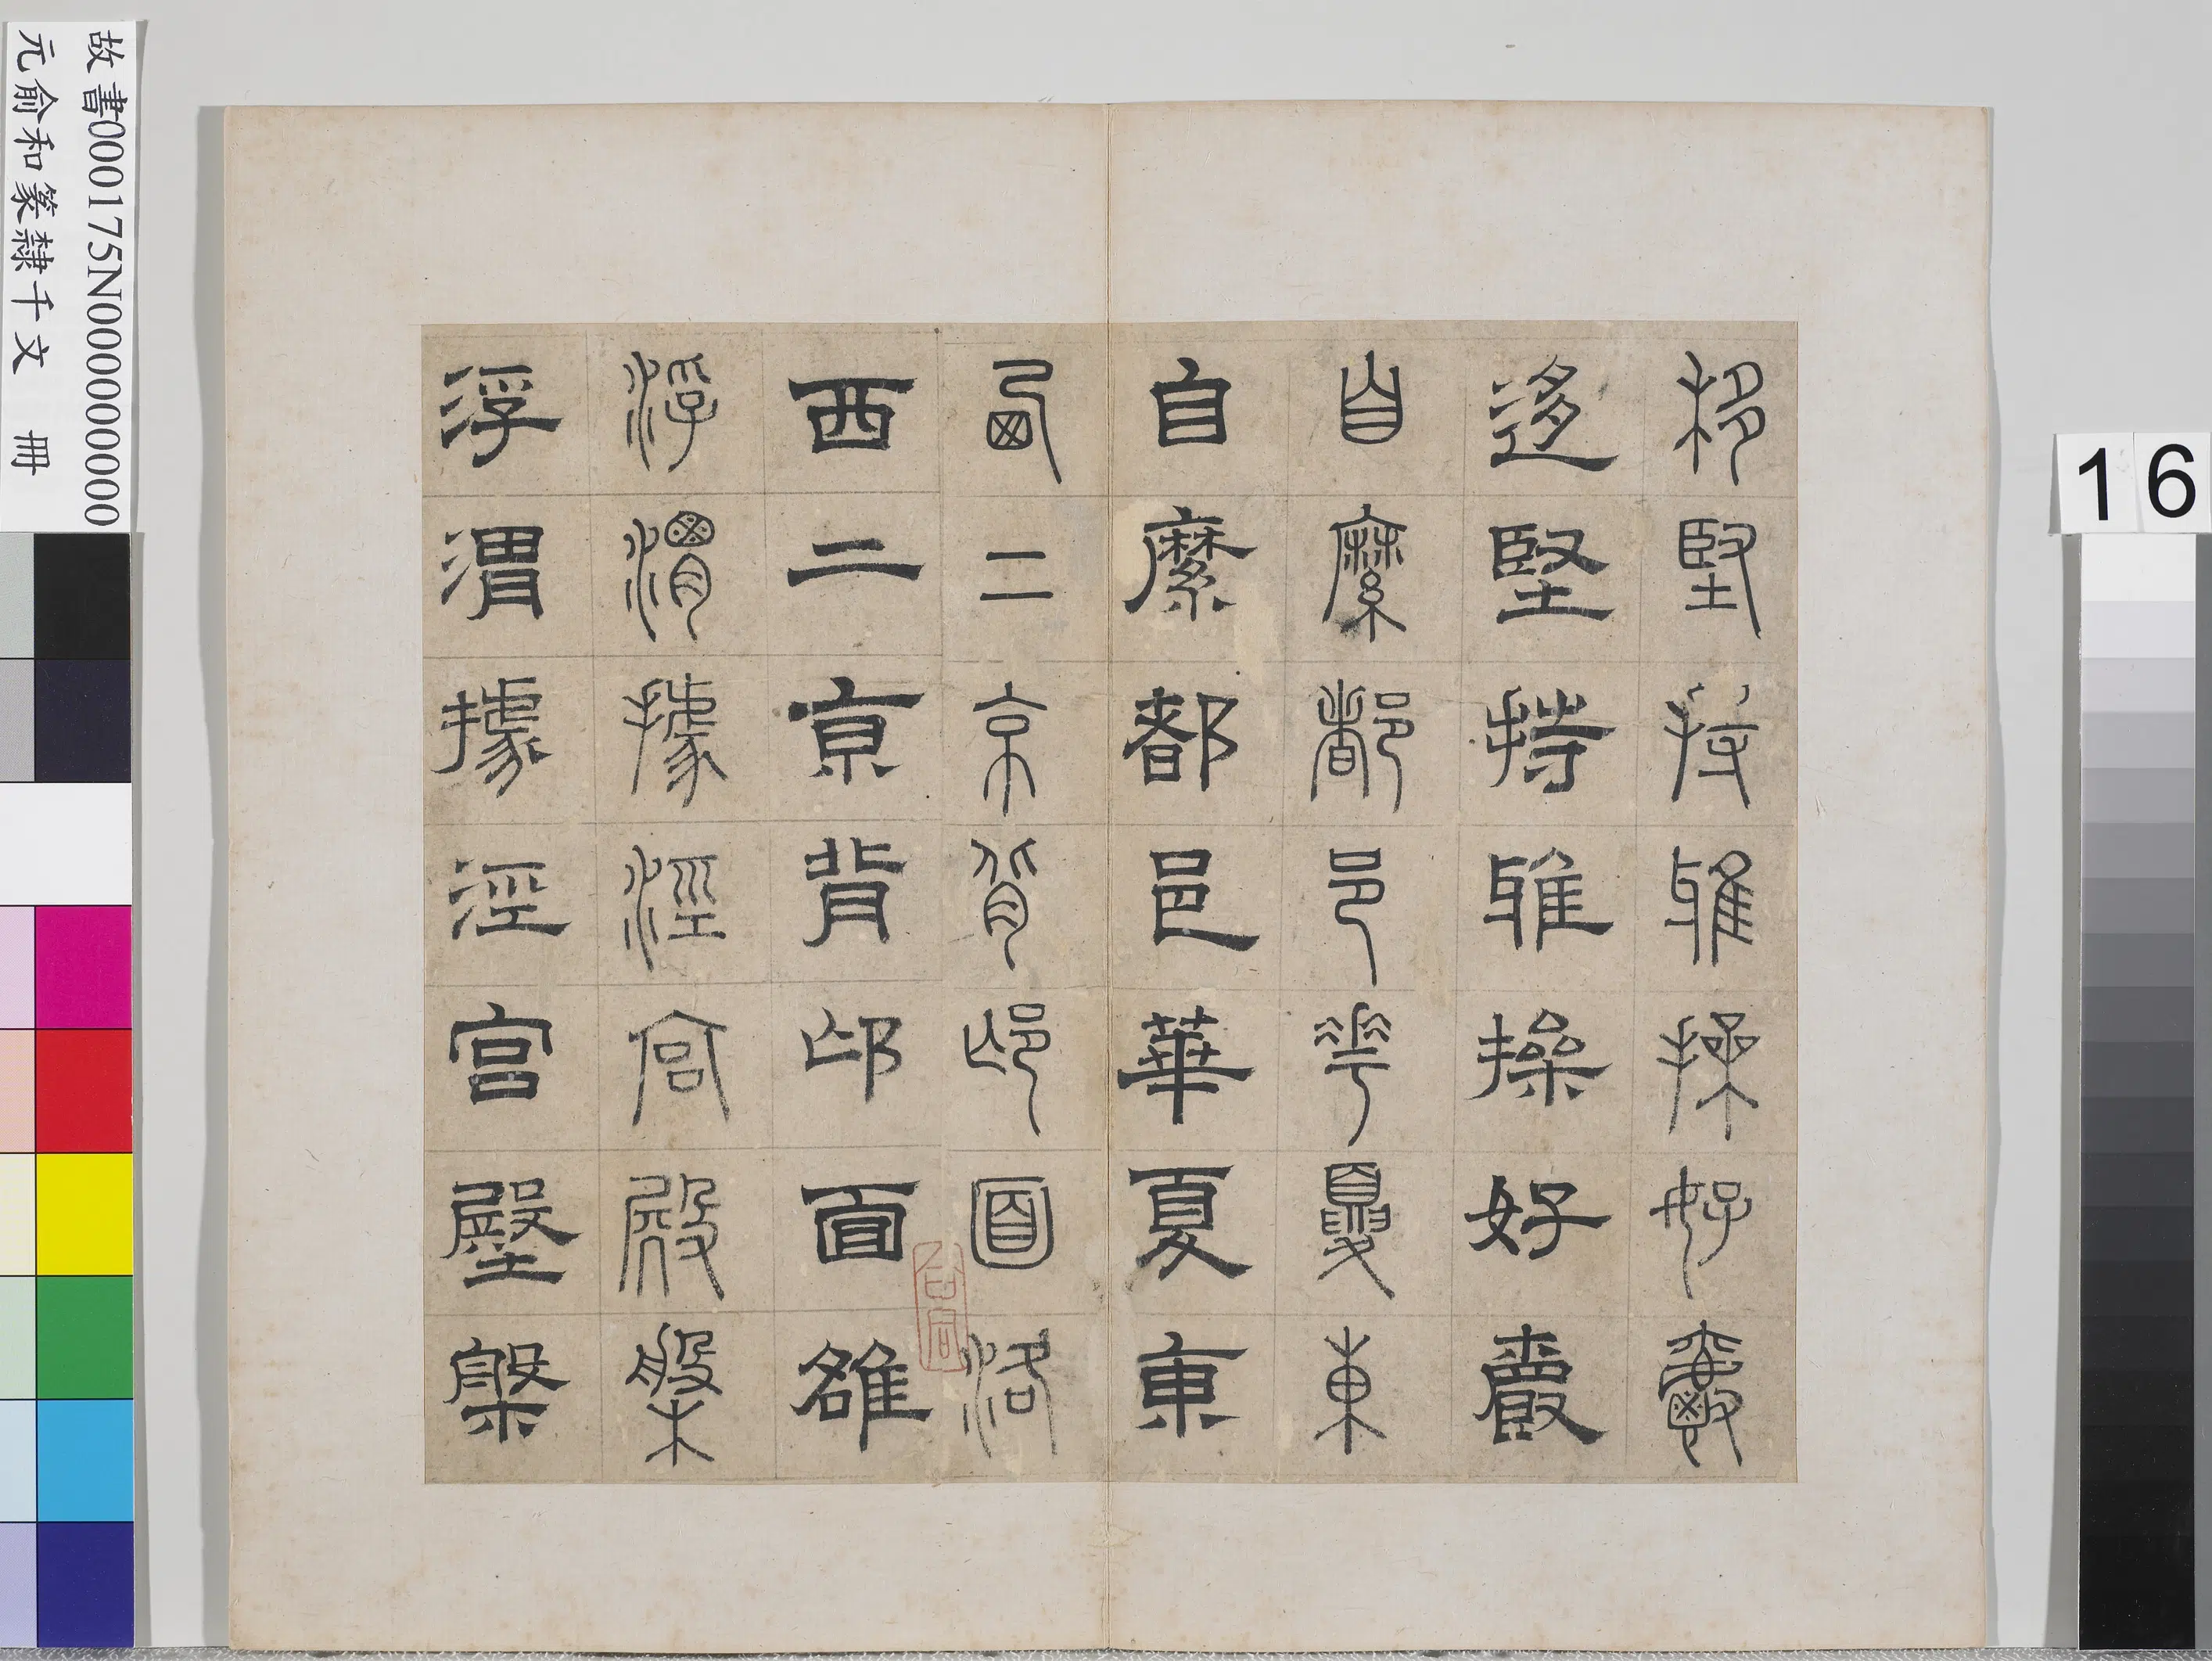 移堅持雅操好爵
迻堅持雅操好爵
自縻都邑華夏東
自縻都邑華夏東
西二京背邙面洛
西二京背邙面雒
浮渭據涇宮殿槃
浮渭據涇宮殿槃
故書000175N000000000
元俞和篆隸千文 冊
16